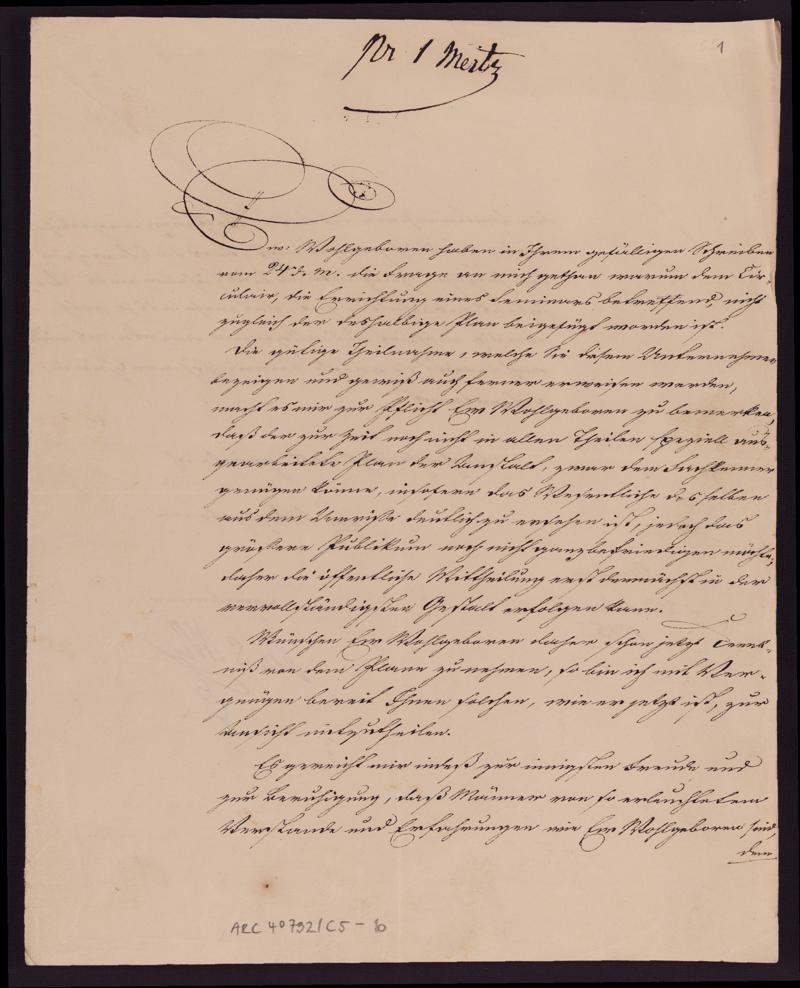 1
Nr 1 Mertz
Ew: Wohlgeboren haben in Ihrem gefälligen Schreiben
vom 24 v. M. die Frage an mich gethan warum dem Cir-
culair, die Errichtung eines Seminars betreffend, nicht
zugleich der desfalsige Plan beigefügt worden ist.
Die gütige Theilnahme, welche Sie diesem Unternehmen
bezeigen und gewiß auch ferner erweisen werden,
macht es mir zur Pflicht Ew Wohlgeboren zu bemerken,
daß der zur Zeit noch nicht in allen Theilen speziell aus-
gearbeitete Plan der Anstalt, zwar dem Sachkenner
genügen könne, insofern das Wesentliche desselben
aus dem Umrisse deutlich zu ersehen ist, jedoch das
größere Publikum noch nicht ganz befriedigen möchte,
daher die öffentliche Mittheilung erst demnächst in der
vervollständigten Gestalt erfolgen kann.
Wünschen Ew Wohlgeboren daher schon jetzt Kennt-
niß von dem Plane zu nehmen, so bin ich mit Ver-
gnügen bereit Ihnen solchen, wie er jetzt ist, zur
Ansicht mitzutheilen.
Es gereicht mir indeß zur innigsten Freude und
zur Beruhigung, daß Männer von so erleuchtetem
Verstande und Erfahrungen wie Ew Wohlgeboren sind,
dem
ARC 4° 792/C5-